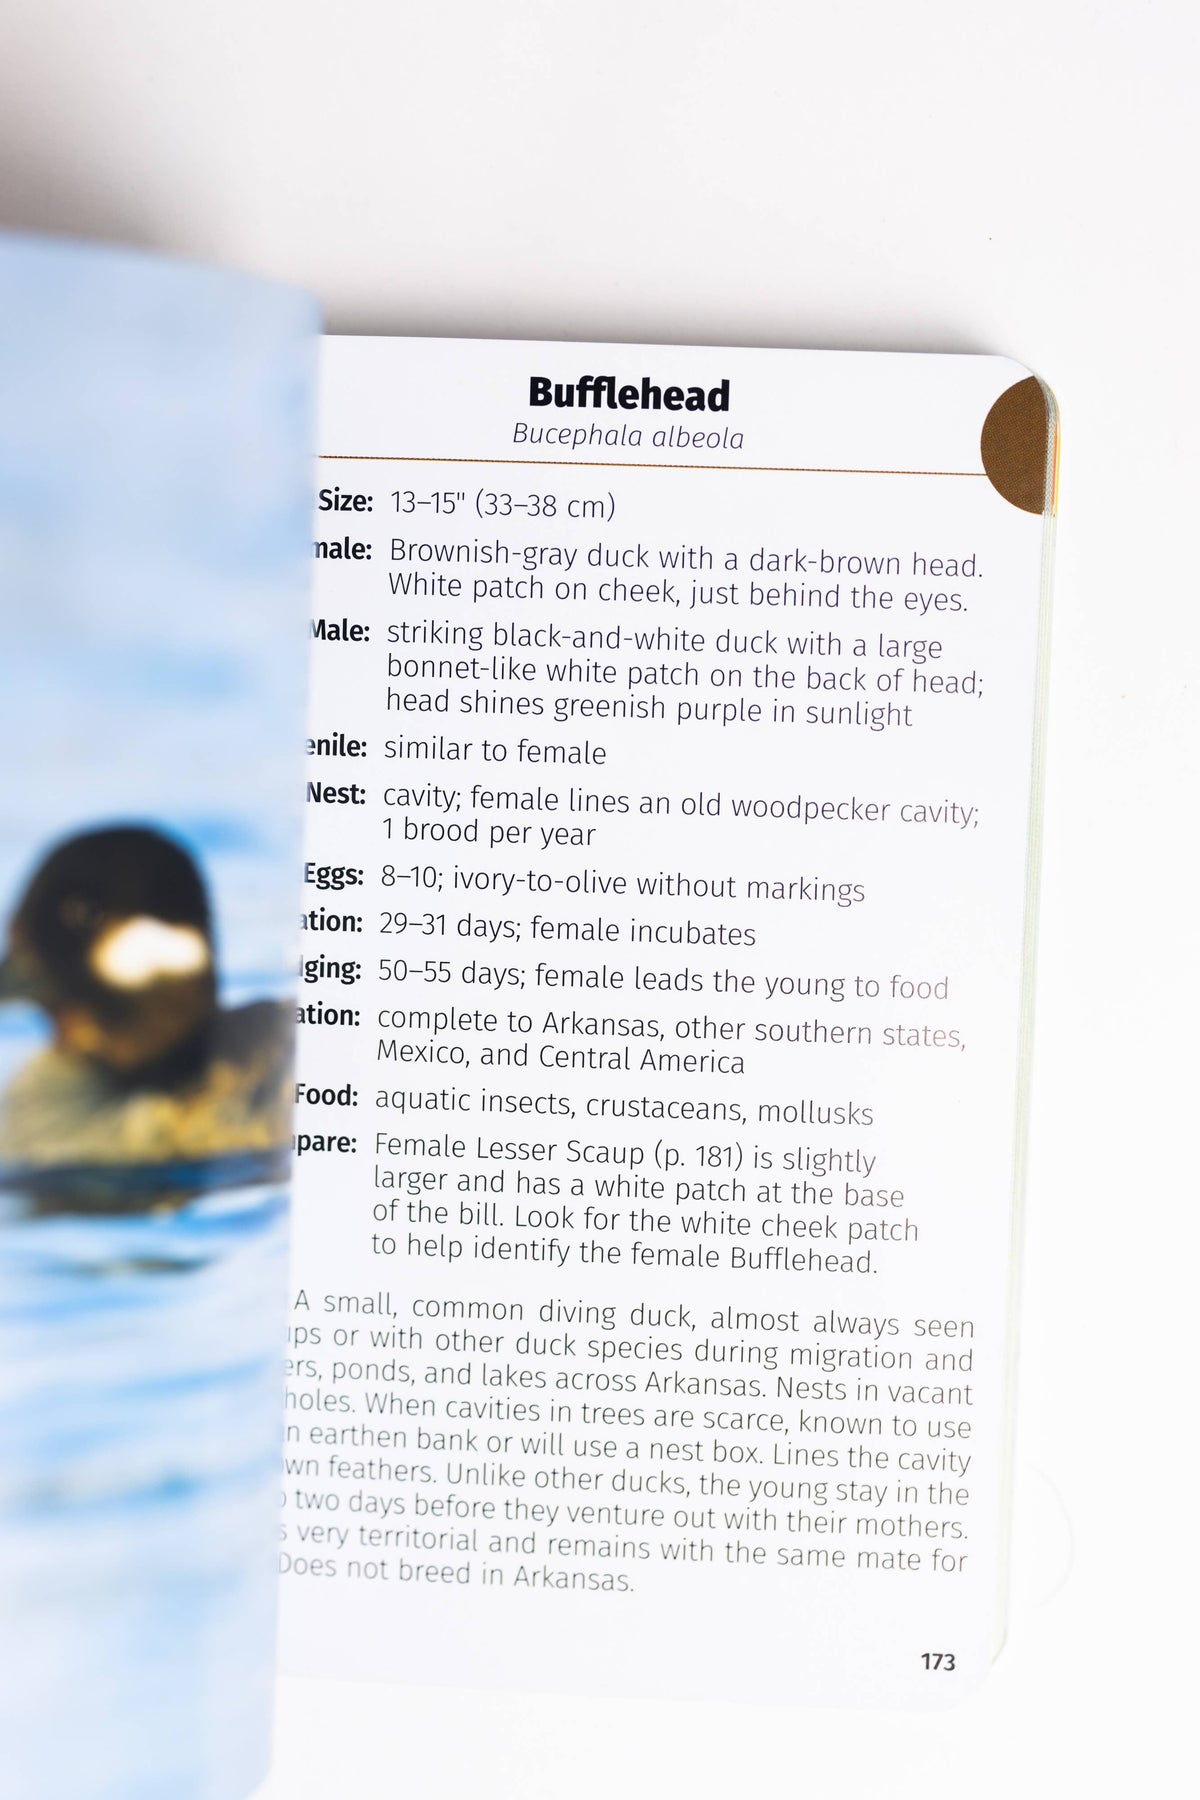 Bufflehead
Bucephala albeola
Size: 13–15" (33–38 cm)
male: Brownish-gray duck with a dark-brown head.
White patch on cheek, just behind the eyes.
Male: striking black-and-white duck with a large
bonnet-like white patch on the back of head;
head shines greenish purple in sunlight
enile: similar to female
Nest: cavity; female lines an old woodpecker cavity;
1 brood per year
Eggs: 8–10; ivory-to-olive without markings
ation: 29–31 days; female incubates
dging: 50–55 days; female leads the young to food
ation: complete to Arkansas, other southern states,
Mexico, and Central America
Food: aquatic insects, crustaceans, mollusks
pare: Female Lesser Scaup (p. 181) is slightly
larger and has a white patch at the base
of the bill. Look for the white cheek patch
to help identify the female Bufflehead.
A small, common diving duck, almost always seen
ups or with other duck species during migration and
ers, ponds, and lakes across Arkansas. Nests in vacant
holes. When cavities in trees are scarce, known to use
n earthen bank or will use a nest box. Lines the cavity
wn feathers. Unlike other ducks, the young stay in the
o two days before they venture out with their mothers.
s very territorial and remains with the same mate for
Does not breed in Arkansas.
173